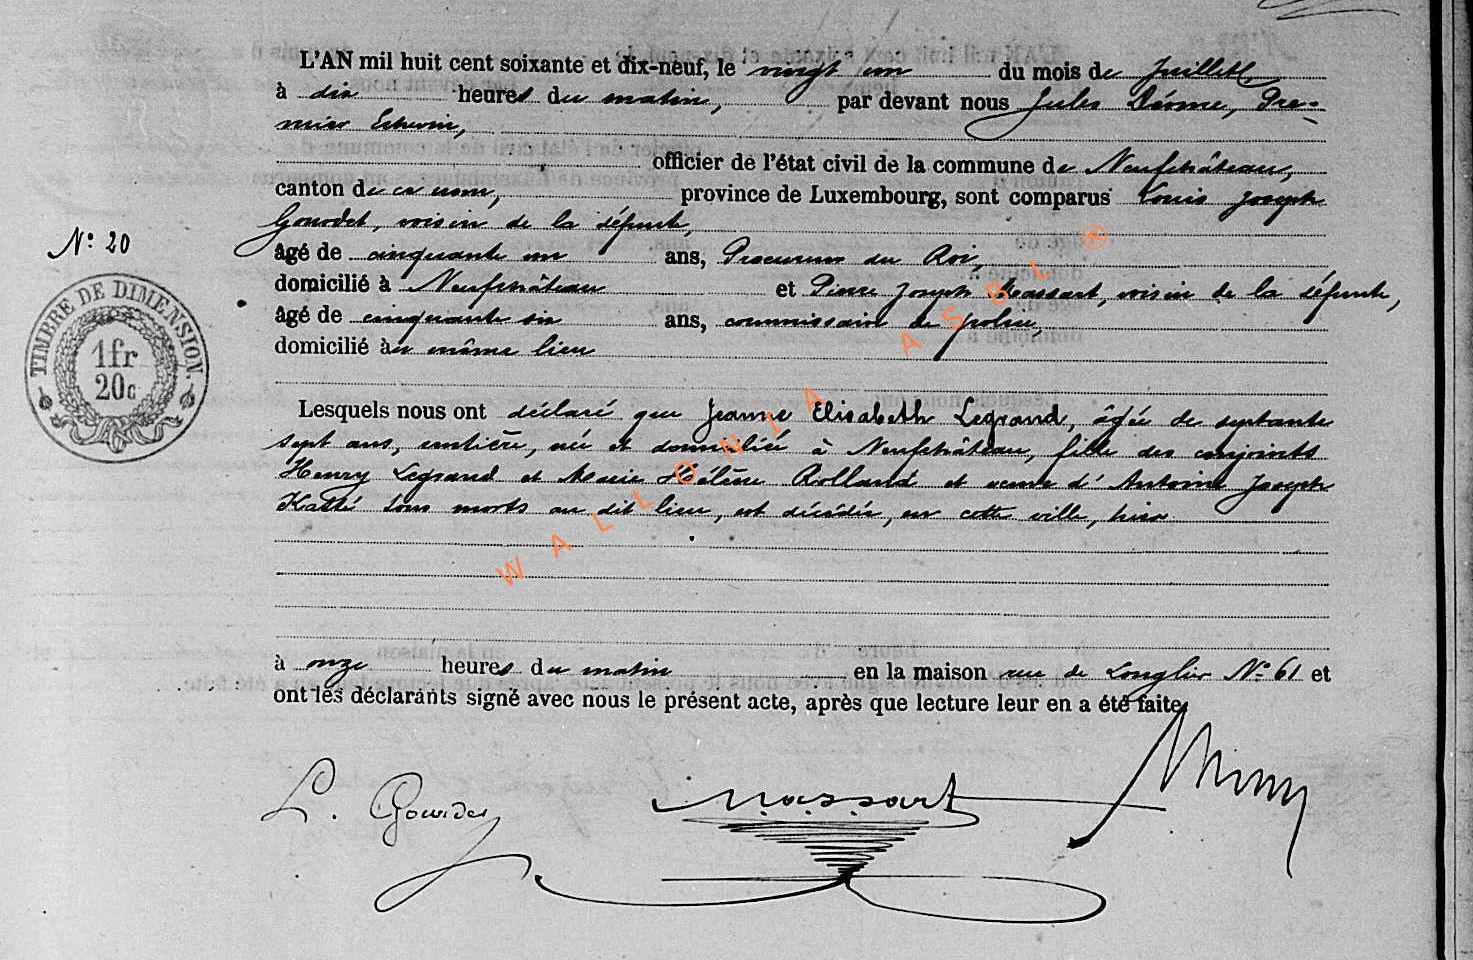 L'AN mil huit cent soixante et dix-neuf, le vingt un du mois de Juillet
à dix heures du matin, par devant nous Jules Dérome, Pre-
mier Echevin,
officier de l'état civil de la commune de Neufchâteau,
canton de ce nom, province de Luxembourg, sont comparus Louis Joseph
Gourdet, voisin de la défunte,
N° 20
âgé de cinquante un ans, Procureur du Roi,
domicilié à Neufchâteau et Pierre Joseph Massart, voisin de la défunte,
âgé de cinquante six ans, commissaire de police,
domicilié au même lieu
TIMBRE DE DIMENSION.
1fr
20c
Lesquels nous ont déclaré que Jeanne Elisabeth Legrand, âgée de septante
sept ans, rentière, née et domiciliée à Neufchâteau, fille des conjoints
Henry Legrand et Marie Hélène Rolland et veuve d'Antoine Joseph
Katté tous morts au dit lieu, est décédée, en cette ville, hier
à onze heures du matin en la maison rue de Longlier N° 61 et
ont les déclarants signé avec nous le présent acte, après que lecture leur en a été faite.
L. Gourdet Massart
WALLONIA ASBL ®